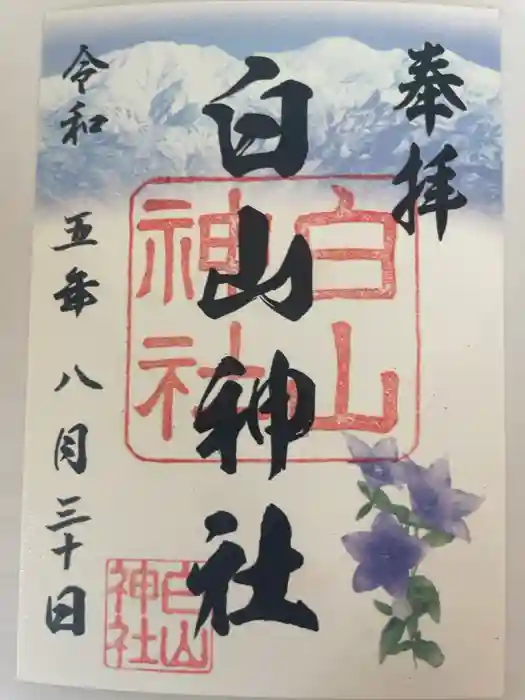 奉拝
白山神社
白山
神社
令和五年八月三十日
白山
神社